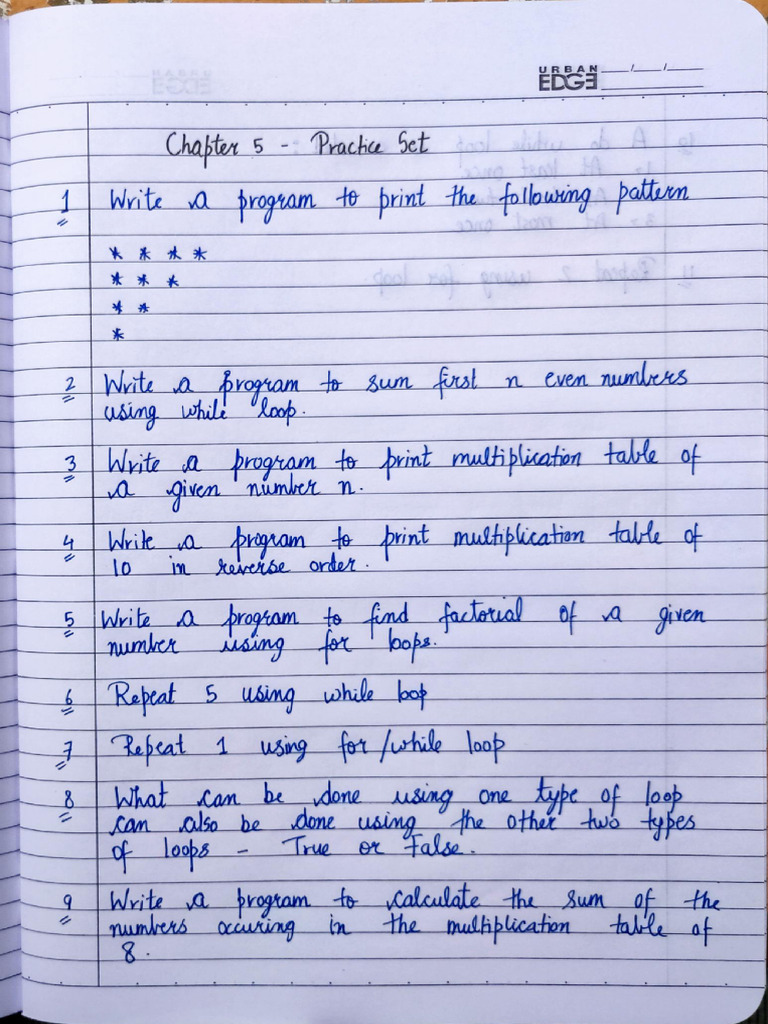 URBAN
EDGE __/__/__
Chapter 5 - Practice Set
1 Write a program to print the following pattern
* * * *
* * *
* *
*
2 Write a program to sum first n even numbers
using while loop.
3 Write a program to print multiplication table of
a given number n.
4 Write a program to print multiplication table of
10 in reverse order.
5 Write a program to find factorial of a given
number using for loops.
6 Repeat 5 using while loop
7 Repeat 1 using for/while loop
8 What can be done using one type of loop
can also be done using the other two types
of loops - True or False.
9 Write a program to calculate the sum of the
numbers occuring in the multiplication table of
8.